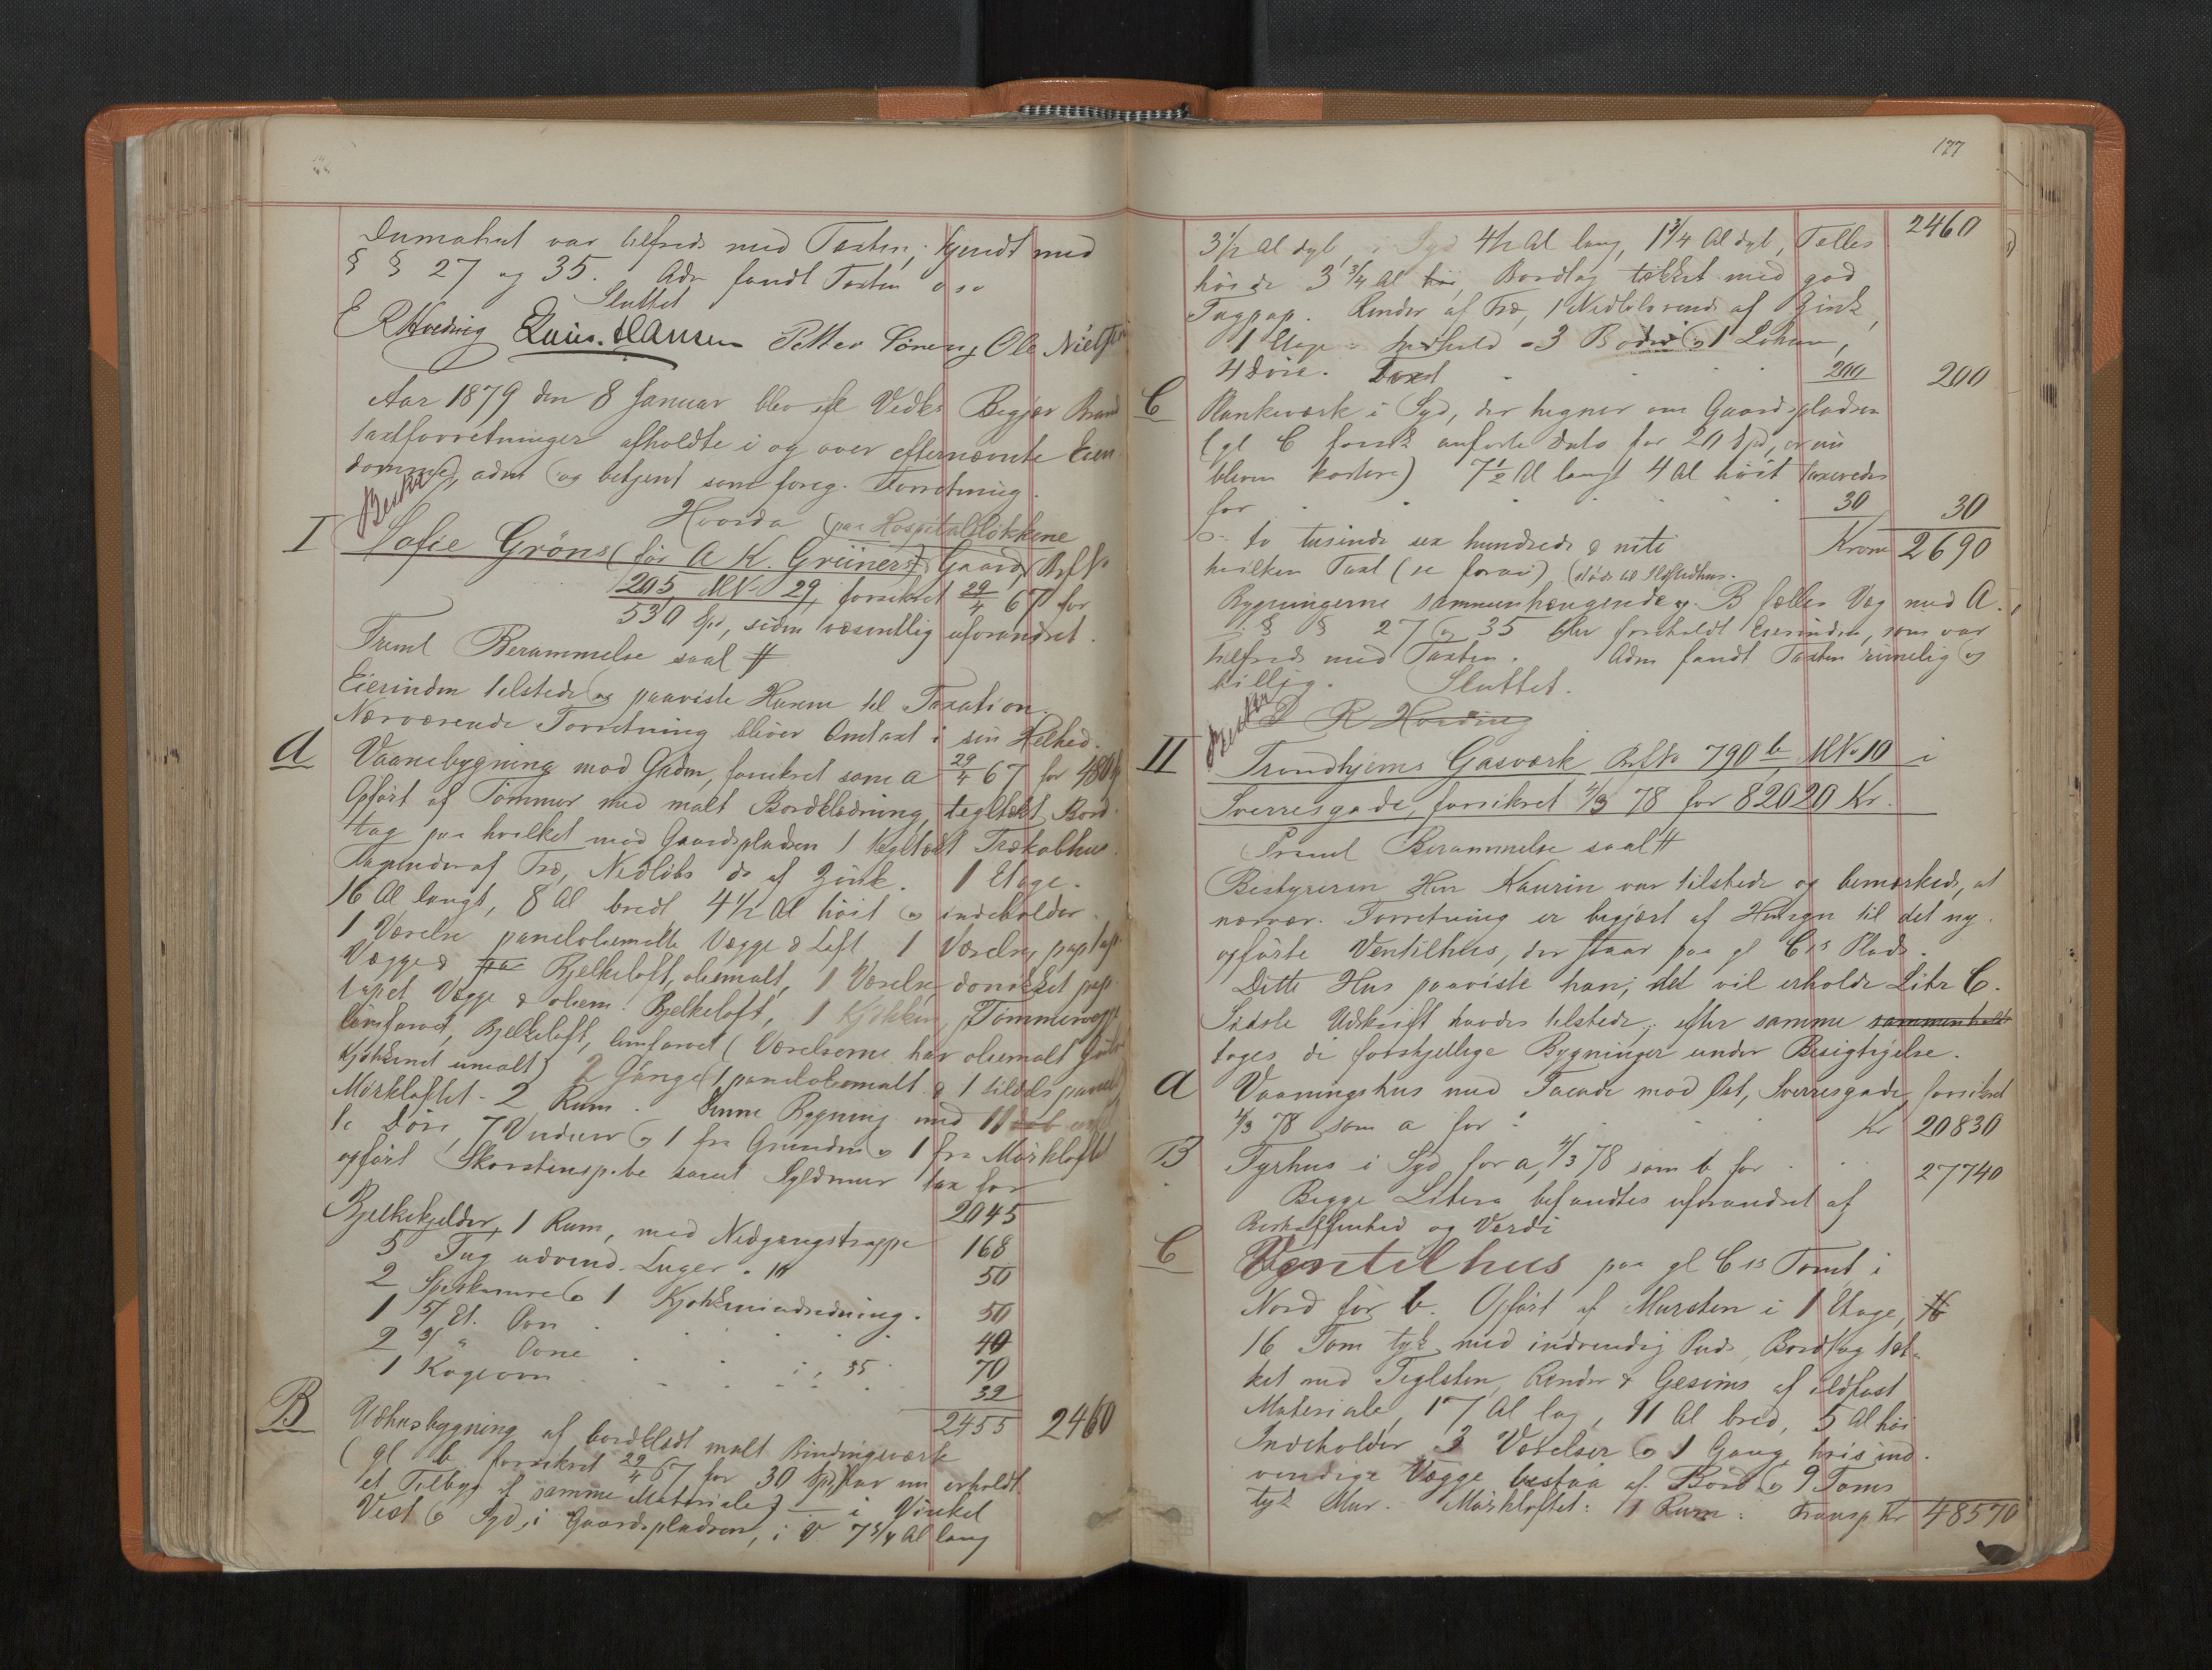 Dumahut var tilfreds med Taxten; kjendt med
§ § 27 og 35. Adm fandt Taxten o s v
Sluttet
E R Hvedvig Laur. Hansen Petter Sörens Ole Nielsen
Aar 1879 den 8 Januar blev eft Vedk Begjær Brand
taxtforretninger afholdte i og over efternævnte Eien
domme, adm og betjent som foreg. Forretning.
Besk
Hvorda paa Hospitalsløkkene
I Sofie Gröns (før A K. Grüners) Gaard, Brf No
205, MNo 29, forsikret 29/4 67 for
530 Spd, siden væsentlig uforandret.
Fremt Berammelse saal #
Eierinden tilstede og paaviste Husene til Taxation.
Nærværende Forretning bliver Omtaxt i sin Helhed.
A Vaanebygning mod Gaden, forsikret som a 29/4 67 for 480
Opført af Tömmer med malt Bordklædning, tegltækt Bord
tag paa hvilket mod Gaardspladsen 1 tegltækt Trækobhus.
Tagrender af Træ, Nedlöbs do af Zink. 1 Etage.
16 Al langt, 8 Al bredt 4 1/2 Al höit og indeholder
1 Værelse paneloliemalte Vægge & Loft 1 Værelse, pap tap
Vægge & Bjelkeloft, oliemalt, 1 Værelse donikket pap
tapet Vægge & oliem. Bjelkeloft, 1 Kjökken, Tömmervægge
limfarvet, Bjelkeloft, limfarvet (Værelserne har oliemalt Gulv
Kjökkenet umalt) 2 Gange (1 paneloliemalt & 1 tildels panel)
Mörkloftet - 2 Rum. Denne Bygning med 11
te Döre, 7 Vinduer og 1 fra Grunden og 1 fra Mörkloftet
opfört Skorstenspibe samt Syldmur tax for
2045
Bjelkekjelder, 1 Rum, med Nedgangstrappe 168
5 Fag udvend. Luger 50
2 Spiskamre og 1 Kjökkenindredning. 50
1 5/ Et. Ovn 40
2 3/ " Ovne 35 70
1 Kogeovn 32
2455 2460
B Udhusbygning af bordklædt malt Bindingsværk
(gl b forsikret 29/4 67 for 30 Spd, har nu erholdt
et Tilbyg af samme Materiale) - i Vinkel
Vest og Syd, i Gaardspladsen, i V 7 3/4 Al lang
177
2460
3 1/2 Al dyb, i Syd 4 1/2 Al lang, 1 3/4 Al dyb, Fælles
höide 3 3/4 Al, Bordtag tækket med god
Tagpap. Render af Træ, 1 Nedlöbsrende af Zink,
1 Etage - Indhold - 3 Boder og 1 Lokum,
4 Döre. Taxt 200 200
C Plankeværk i Syd, der hegner om Gaardspladsen
(gl C forsik anförte Dato for 20 Spd, er nu
bleven kortere) 7 1/2 Al langt 4 Al höit taxeredes
for 30 30
to tusinde sex hundrede & niti Kroner 2690
hvilken Taxt (se forani) støder til Ildstedhus.
Bygningerne sammenhængende og B fælles Væg med A.
§ § 27 og 35 blev foreholdt Eierinden, som var
tilfreds med Taxten. Adm fandt Taxten rimelig og
billig. Sluttet.
E R Hvedvig
Besk
II Trondhjems Gasværk Brf No 790 b, MNo 10 i
Sverresgade, forsikret 4/3 78 for 82020 Kr.
Fremt Berammelse saal #
Bestyreren Herr Kaurin var tilstede og bemærkede, at
nærvær. Forretning er begjært af Hensyn til det ny
opförte Ventilhus, der staar paa gl C's Plads.
Dette Hus paaviste han; det vil erholde Litr C.
Sidste Udskrift havdes tilstede; efter samme sammenholdt
toges de forskjellige Bygninger under Besigtigelse.
A Vaaningshus med Facade mod Öst, Sverresgade, forsikret
4/3 78 som a for: Kr 20830
B Fyrhus i Syd for a, 4/3 78 som b for 27740
Begge Litera befandtes uforandret af
Beskaffenhed og Værdi
C Ventilhus paa gl C's Tomt i
Nord for b. Opført af Mursten i 1 Etage,
16 Tom tyk med indvendig Puds, Bordtag tæk-
ket med Teglsten, Render & Gesims af ildfast
Materiale, 17 Al lag, 11 Al bred, 5 Al höi
Indeholder 3 Værelser og 1 Gang, hvis ind-
vendige Vægge bestaa af Bord og 9 Toms
tyk Mur. Mörkloftet: 1 Rum: Transp Kr 48570